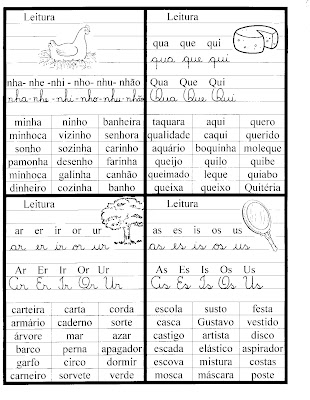 Leitura
nha- nhe -nhi - nho- nhu- nhão
nha- nhe -nhi- nho- nhu-nhão
minha ninho banheira
minhoca vizinho senhora
sonho sozinha carinho
pamonha desenho farinha
minhoca galinha canhão
dinheiro cozinha banho
Leitura
qua que qui
qua que qui
Qua Que Qui
Qua Que Qui
taquara aqui quero
qualidade caqui querido
aquário boquinha moleque
queijo quilo quibe
queimado leque quiabo
queixa queixo Quitéria
Leitura
ar er ir or ur
ar er ir or ur
Ar Er Ir Or Ur
Ar Er Ir Or Ur
carteira carta corda
armário caderno sorte
árvore mar azar
barco perna apagador
garfo circo dormir
carneiro sorvete verde
Leitura
as es is os us
as es is os us
As Es Is Os Us
As Es Is Os Us
escola susto festa
casca Gustavo vestido
castigo artista disco
escada elástico aspirador
escova mistura costas
mosca máscara poste